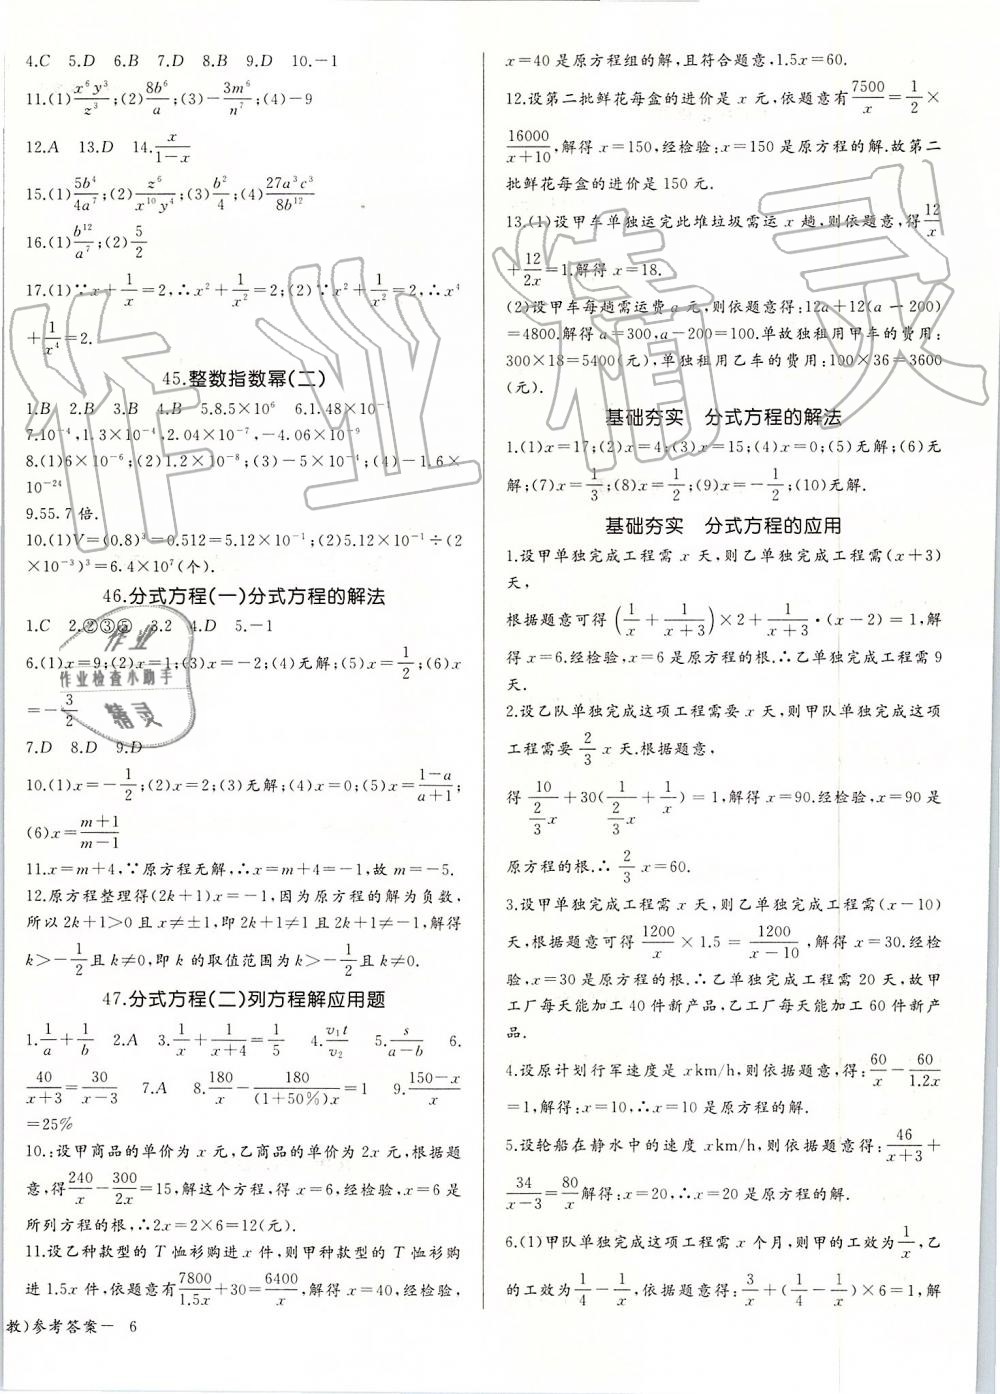 4.C 5.D 6.B 7.D 8.B 9.D 10.－1
11.(1)x⁶y³/z³;(2)8b⁶/a;(3)－3m⁶/n⁷;(4)－9
12.A 13.D 14.x/(1－x)
15.(1)5b⁴/4a⁷;(2)z⁶/(x¹⁰y⁴);(3)b²/4;(4)27a³c³/8b¹²
16.(1)b¹²/a⁷;(2)5/2
17.(1)∵x＋1/x＝2,∴x²＋1/x²＝2;(2)∵x²＋1/x²＝2,∴x⁴
＋1/x⁴＝2.
45.整数指数幂(二)
1.B 2.B 3.B 4.B 5.8.5×10⁶ 6.1.48×10⁻¹
7.10⁻⁴,1.3×10⁻⁴,2.04×10⁻⁷,－4.06×10⁻⁹
8.(1)6×10⁻⁶;(2)1.2×10⁻⁸;(3)－5×10⁻⁴;(4)－1.6×
10⁻²⁴
9.55.7倍.
10.(1)V＝(0.8)³＝0.512＝5.12×10⁻¹;(2)5.12×10⁻¹÷(2
×10⁻³)³＝6.4×10⁷(个).
46.分式方程(一)分式方程的解法
1.C 2.②③⑤ 3.2 4.D 5.－1
6.(1)x＝9;(2)x＝1;(3)x＝－3;(4)无解;(5)x＝1/2;(6)x
＝－3/2
7.D 8.D 9.D
10.(1)x＝－1/2;(2)x＝2;(3)无解;(4)x＝0;(5)x＝(1－a)/(a＋1);
(6)x＝(m＋1)/(m－1)
11.x＝m＋4,∵原方程无解,∴x＝m＋4＝－1,故m＝－5.
12.原方程整理得(2k＋1)x＝－1,因为原方程的解为负数,
所以2k＋1>0且x≠±1,即2k＋1≠1且2k＋1≠－1,解得
k>－1/2且k≠0,即k的取值范围为k>－1/2且k≠0.
47.分式方程(二)列方程解应用题
1.1/a＋1/b 2.A 3.1/x＋1/(x＋4)＝1/5 4.v₁t/v₂ 5.s/(a－b) 6.
40/(x＋3)＝30/(x－3) 7.A 8.180/x－180/((1＋50%)x)＝1 9.(150－x)/x
＝25%
10.:设甲商品的单价为x元,乙商品的单价为2x元,根据题
意,得240/x－300/2x＝15,解这个方程,得x＝6,经检验,x＝6是
所列方程的根,∴2x＝2×6＝12(元).
11.设乙种款型的T恤衫购进x件,则甲种款型的T恤衫购
进1.5x件,依题意有7800/1.5x＋30＝6400/x,解得x＝40,经检验,
教)参考答案－ 6
x＝40是原方程组的解,且符合题意,1.5x＝60.
12.设第二批鲜花每盒的进价是x元,依题意有7500/x＝1/2×
16000/(x＋10),解得x＝150,经检验:x＝150是原方程的解.故第二
批鲜花每盒的进价是150元.
13.(1)设甲车单独运完此堆垃圾需运x趟,则依题意,得12/x
＋12/2x＝1.解得x＝18.
(2)设甲车每趟需运费a元,则依题意得:12a＋12(a－200)
＝4800.解得a＝300,a－200＝100.单故独租用甲车的费用:
300×18＝5400(元),单独租用乙车的费用:100×36＝3600
(元).
基础夯实 分式方程的解法
1.(1)x＝17;(2)x＝4;(3)x＝15;(4)x＝0;(5)无解;(6)无
解;(7)x＝1/3;(8)x＝1/2;(9)x＝－1/2;(10)无解.
基础夯实 分式方程的应用
1.设甲单独完成工程需x天,则乙单独完成工程需(x＋3)
天,
根据题意可得(1/x＋1/(x＋3))×2＋1/(x＋3)·(x－2)＝1,解
得x＝6.经检验,x＝6是原方程的根.∴乙单独完成工程需9
天.
2.设乙队单独完成这项工程需要x天,则甲队单独完成这项
工程需要2/3x天.根据题意,
得10/(2/3x)＋30(1/(2/3x)＋1/x)＝1,解得x＝90.经检验,x＝90是
原方程的根.∴2/3x＝60.
3.设甲单独完成工程需x天,则乙单独完成工程需(x－10)
天,根据题意可得1200/x×1.5＝1200/(x－10),解得x＝30.经检
验,x＝30是原方程的根.∴乙单独完成工程需20天,故甲
工厂每天能加工40件新产品,乙工厂每天能加工60件新产
品.
4.设原计划行军速度是xkm/h,则依题意,得:60/x－60/1.2x
＝1,解得:x＝10,∴x＝10是原方程的解.
5.设轮船在静水中的速度xkm/h,则依题意得:46/(x＋3)＋
34/(x－3)＝80/x解得:x＝20,∴x＝20是原方程的解.
6.(1)甲队单独完成这项工程需x个月,则甲的工效为1/x,乙
的工效为1/4－1/x,依题意得:3/x＋(1/4－1/x)×6＝1,解
作业精灵
作业
作业检查小助手
精灵